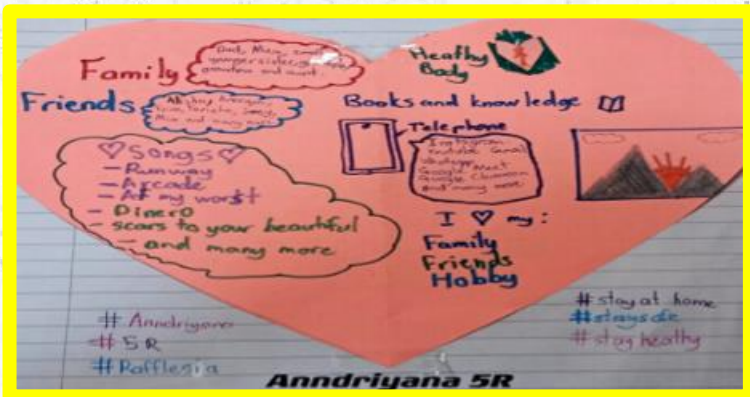 Family
Dad, Mum,
and aunt.
Friends
and many more
♡ Songs ♡
- Runway
- Arcade
- At my worst
- Dinero
- scars to your beautiful
- and many more
Heathy
Body
Books and knowledge
Telephone
Instagram
Youtube Gmail
Whatsapp
Google Meet
Google Classroom
and many more
I ♡ my:
Family
Friends
Hobby
# Anndriyana
# 5R
# Rafflesia
# stay at home
# staysafe
# stay heathy
Anndriyana 5R